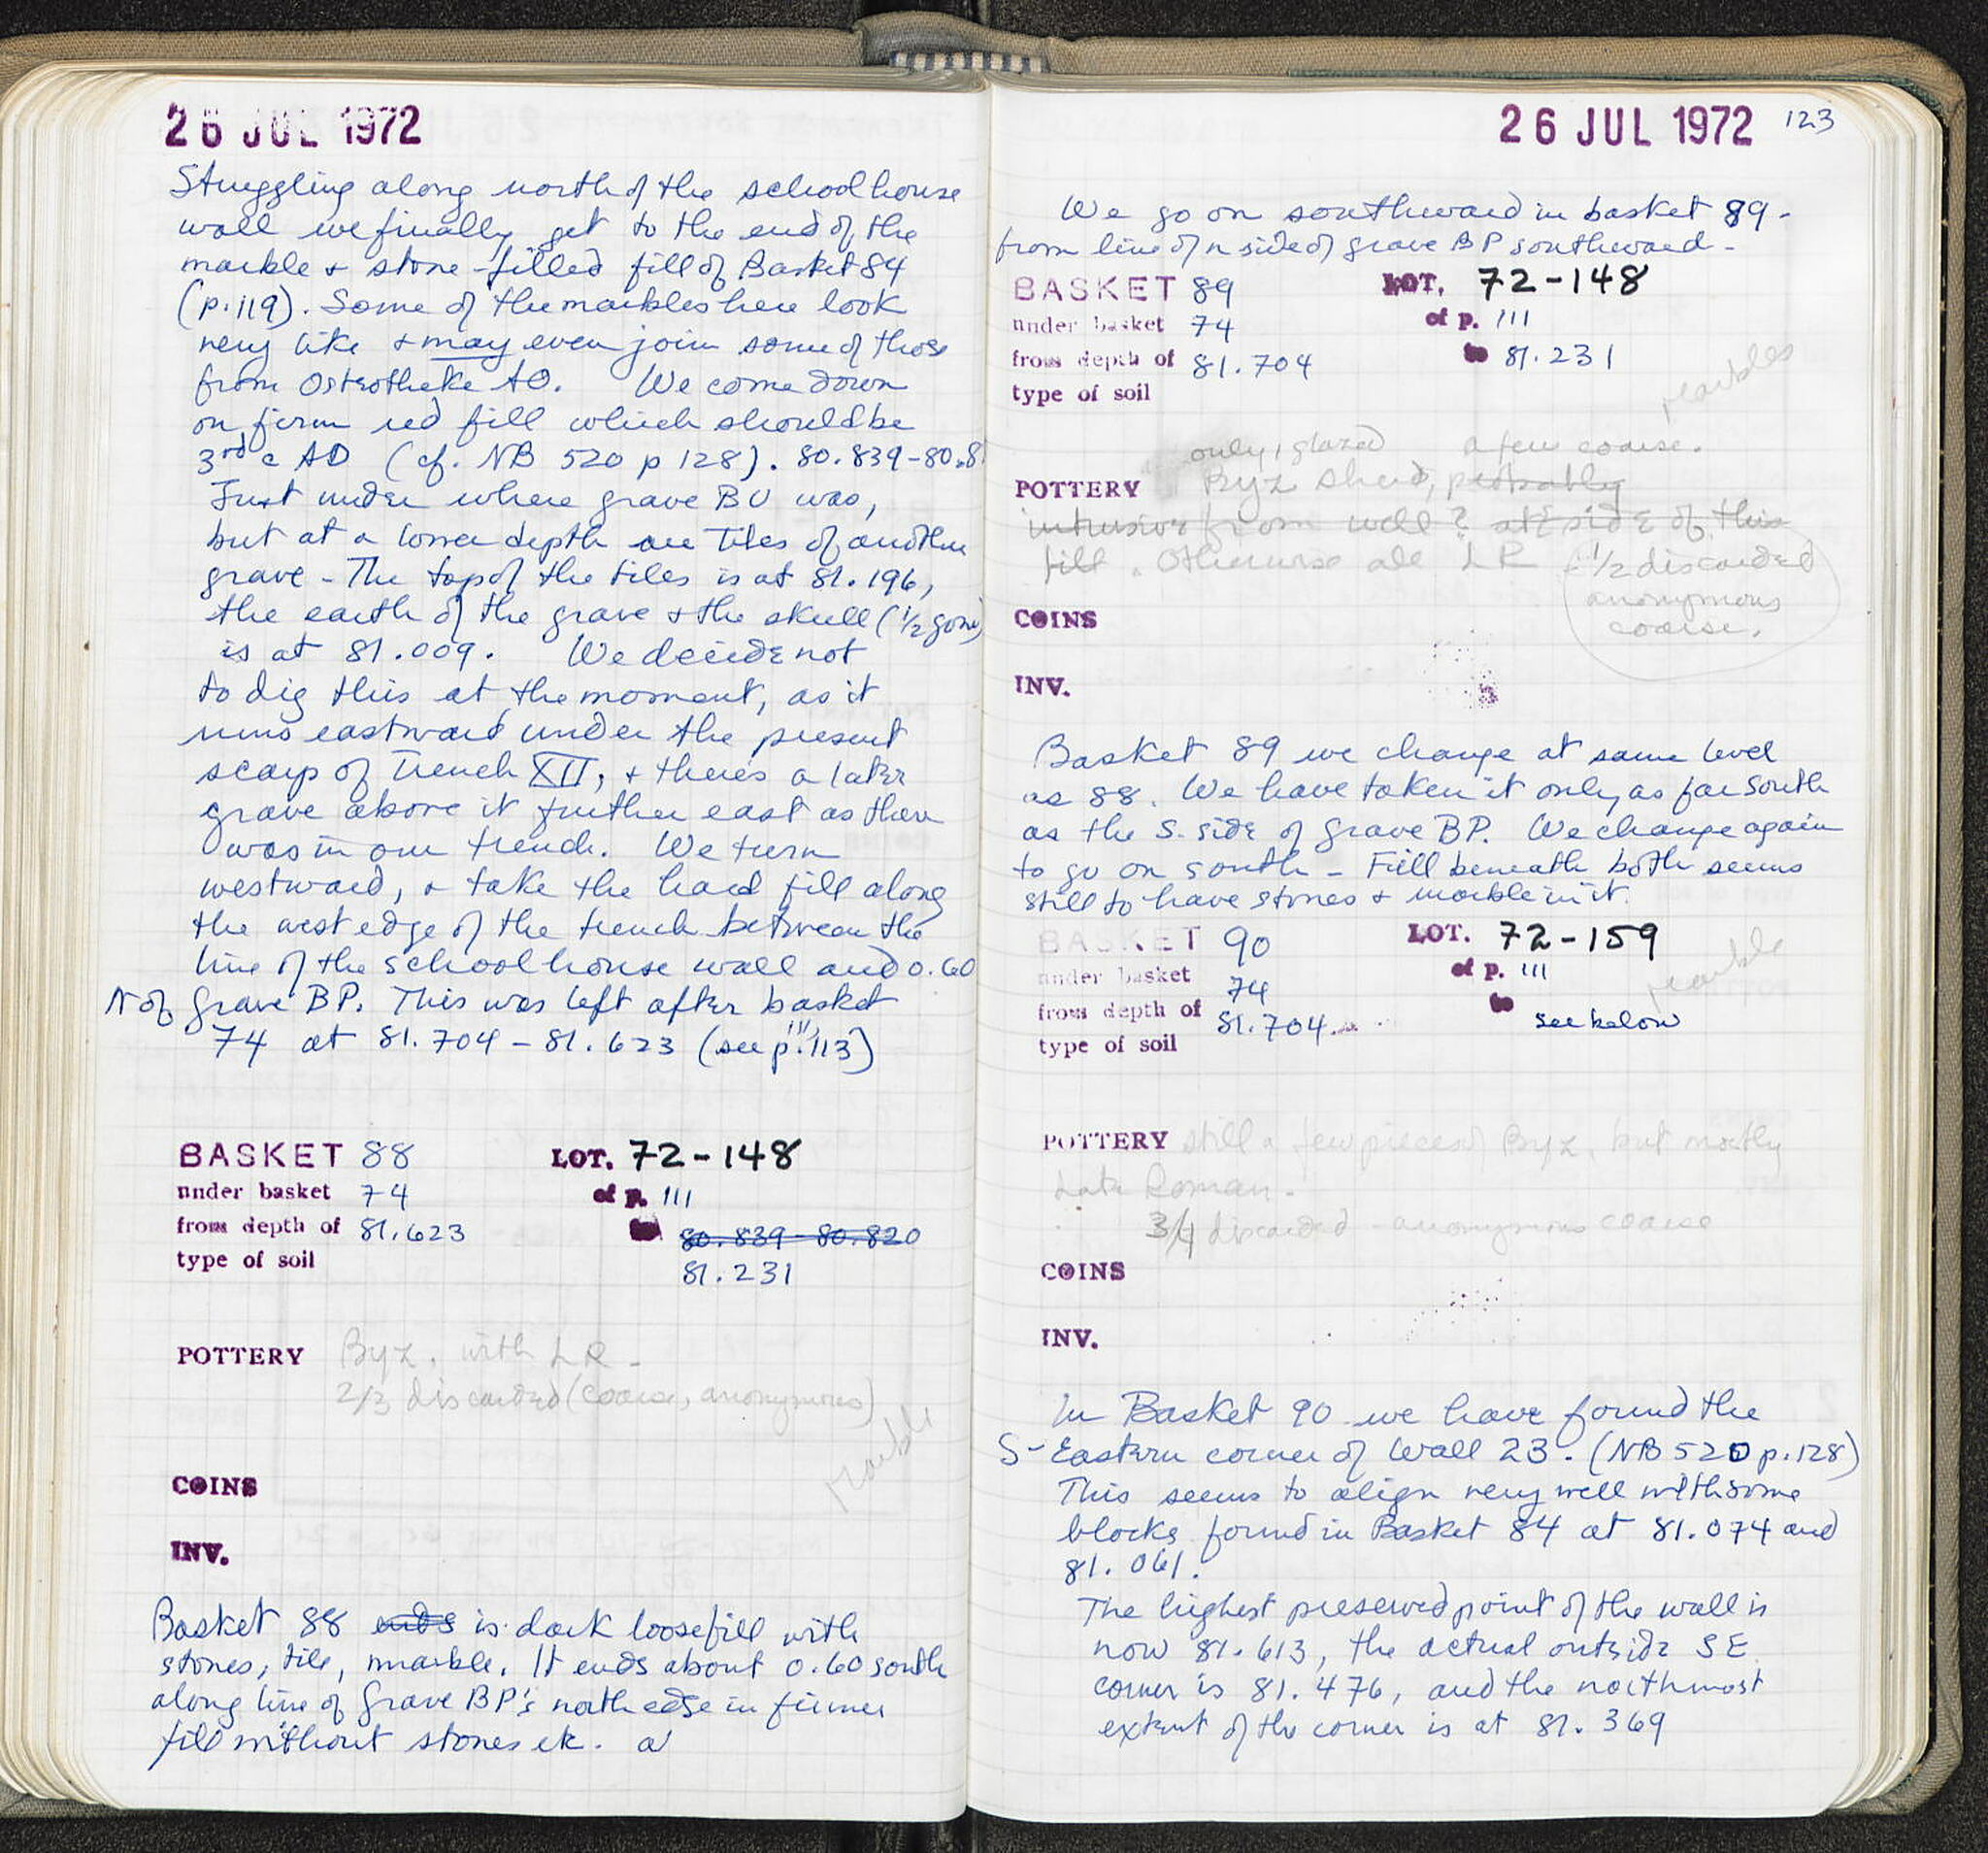 26 JUL 1972
Struggling along north of the schoolhouse
wall we finally get to the end of the
marble & stone-filled fill of Basket 84
(p. 119). Some of the marbles here look
very like & may even join some of those
from Osteotheke AO. We come down
on firm red fill which should be
3rd c AD (cf. NB 520 p 128). 80.839-80.8
Just under where grave BU was,
but at a lower depth are tiles of another
grave - The top of the tiles is at 81.196,
the earth of the grave & the skull (1/2 gone)
is at 81.009. We decide not
to dig this at the moment, as it
runs eastward under the present
scarp of Trench XII, & there's a later
grave above it further east as there
was in our trench. We turn
westward, & take the hard fill along
the west edge of the trench between the
line of the schoolhouse wall and 0.60
N of grave BP. This was left after basket
74 at 81.704 - 81.623 (see p. 111, 113)
BASKET 88 LOT. 72-148
under basket 74 of p. 111
from depth of 81.623 80.839-80.820
type of soil 81.231
POTTERY Byz. with LR -
2/3 discarded (coarse, anonymous)
marble
COINS
INV.
Basket 88 ends is dark loose fill with
stones, tile, marble. It ends about 0.60 south
along line of Grave BP's north edge in firmer
fill without stones etc. a
26 JUL 1972 123
We go on southward in basket 89 -
from line of n side of grave BP southward -
BASKET 89 LOT. 72-148
under basket 74 of p. 111
from depth of 81.704 to 81.231
type of soil
marbles
only 1 glazed a few coarse.
POTTERY Byz sherd, probably
intrusive from well? at E side of this
fill. Otherwise all LR - 1/2 discarded
anonymous
coarse.
COINS
INV.
Basket 89 we change at same level
as 88. We have taken it only as far South
as the S. side of Grave BP. We change again
to go on south - Fill beneath both seems
still to have stones & marble in it.
BASKET 90 LOT. 72-159
under basket 74 of p. 111
from depth of 81.704 to see below
type of soil
marble
POTTERY still a few pieces of Byz. but mostly
Late Roman -
3/4 discarded - anonymous coarse
COINS
INV.
In Basket 90 we have found the
S-Eastern corner of Wall 23. (NB 520 p. 128)
This seems to align very well with some
blocks found in Basket 84 at 81.074 and
81.061.
The highest preserved point of the wall is
now 81.613, the actual outside SE
corner is 81.476, and the northmost
extent of the corner is at 81.369